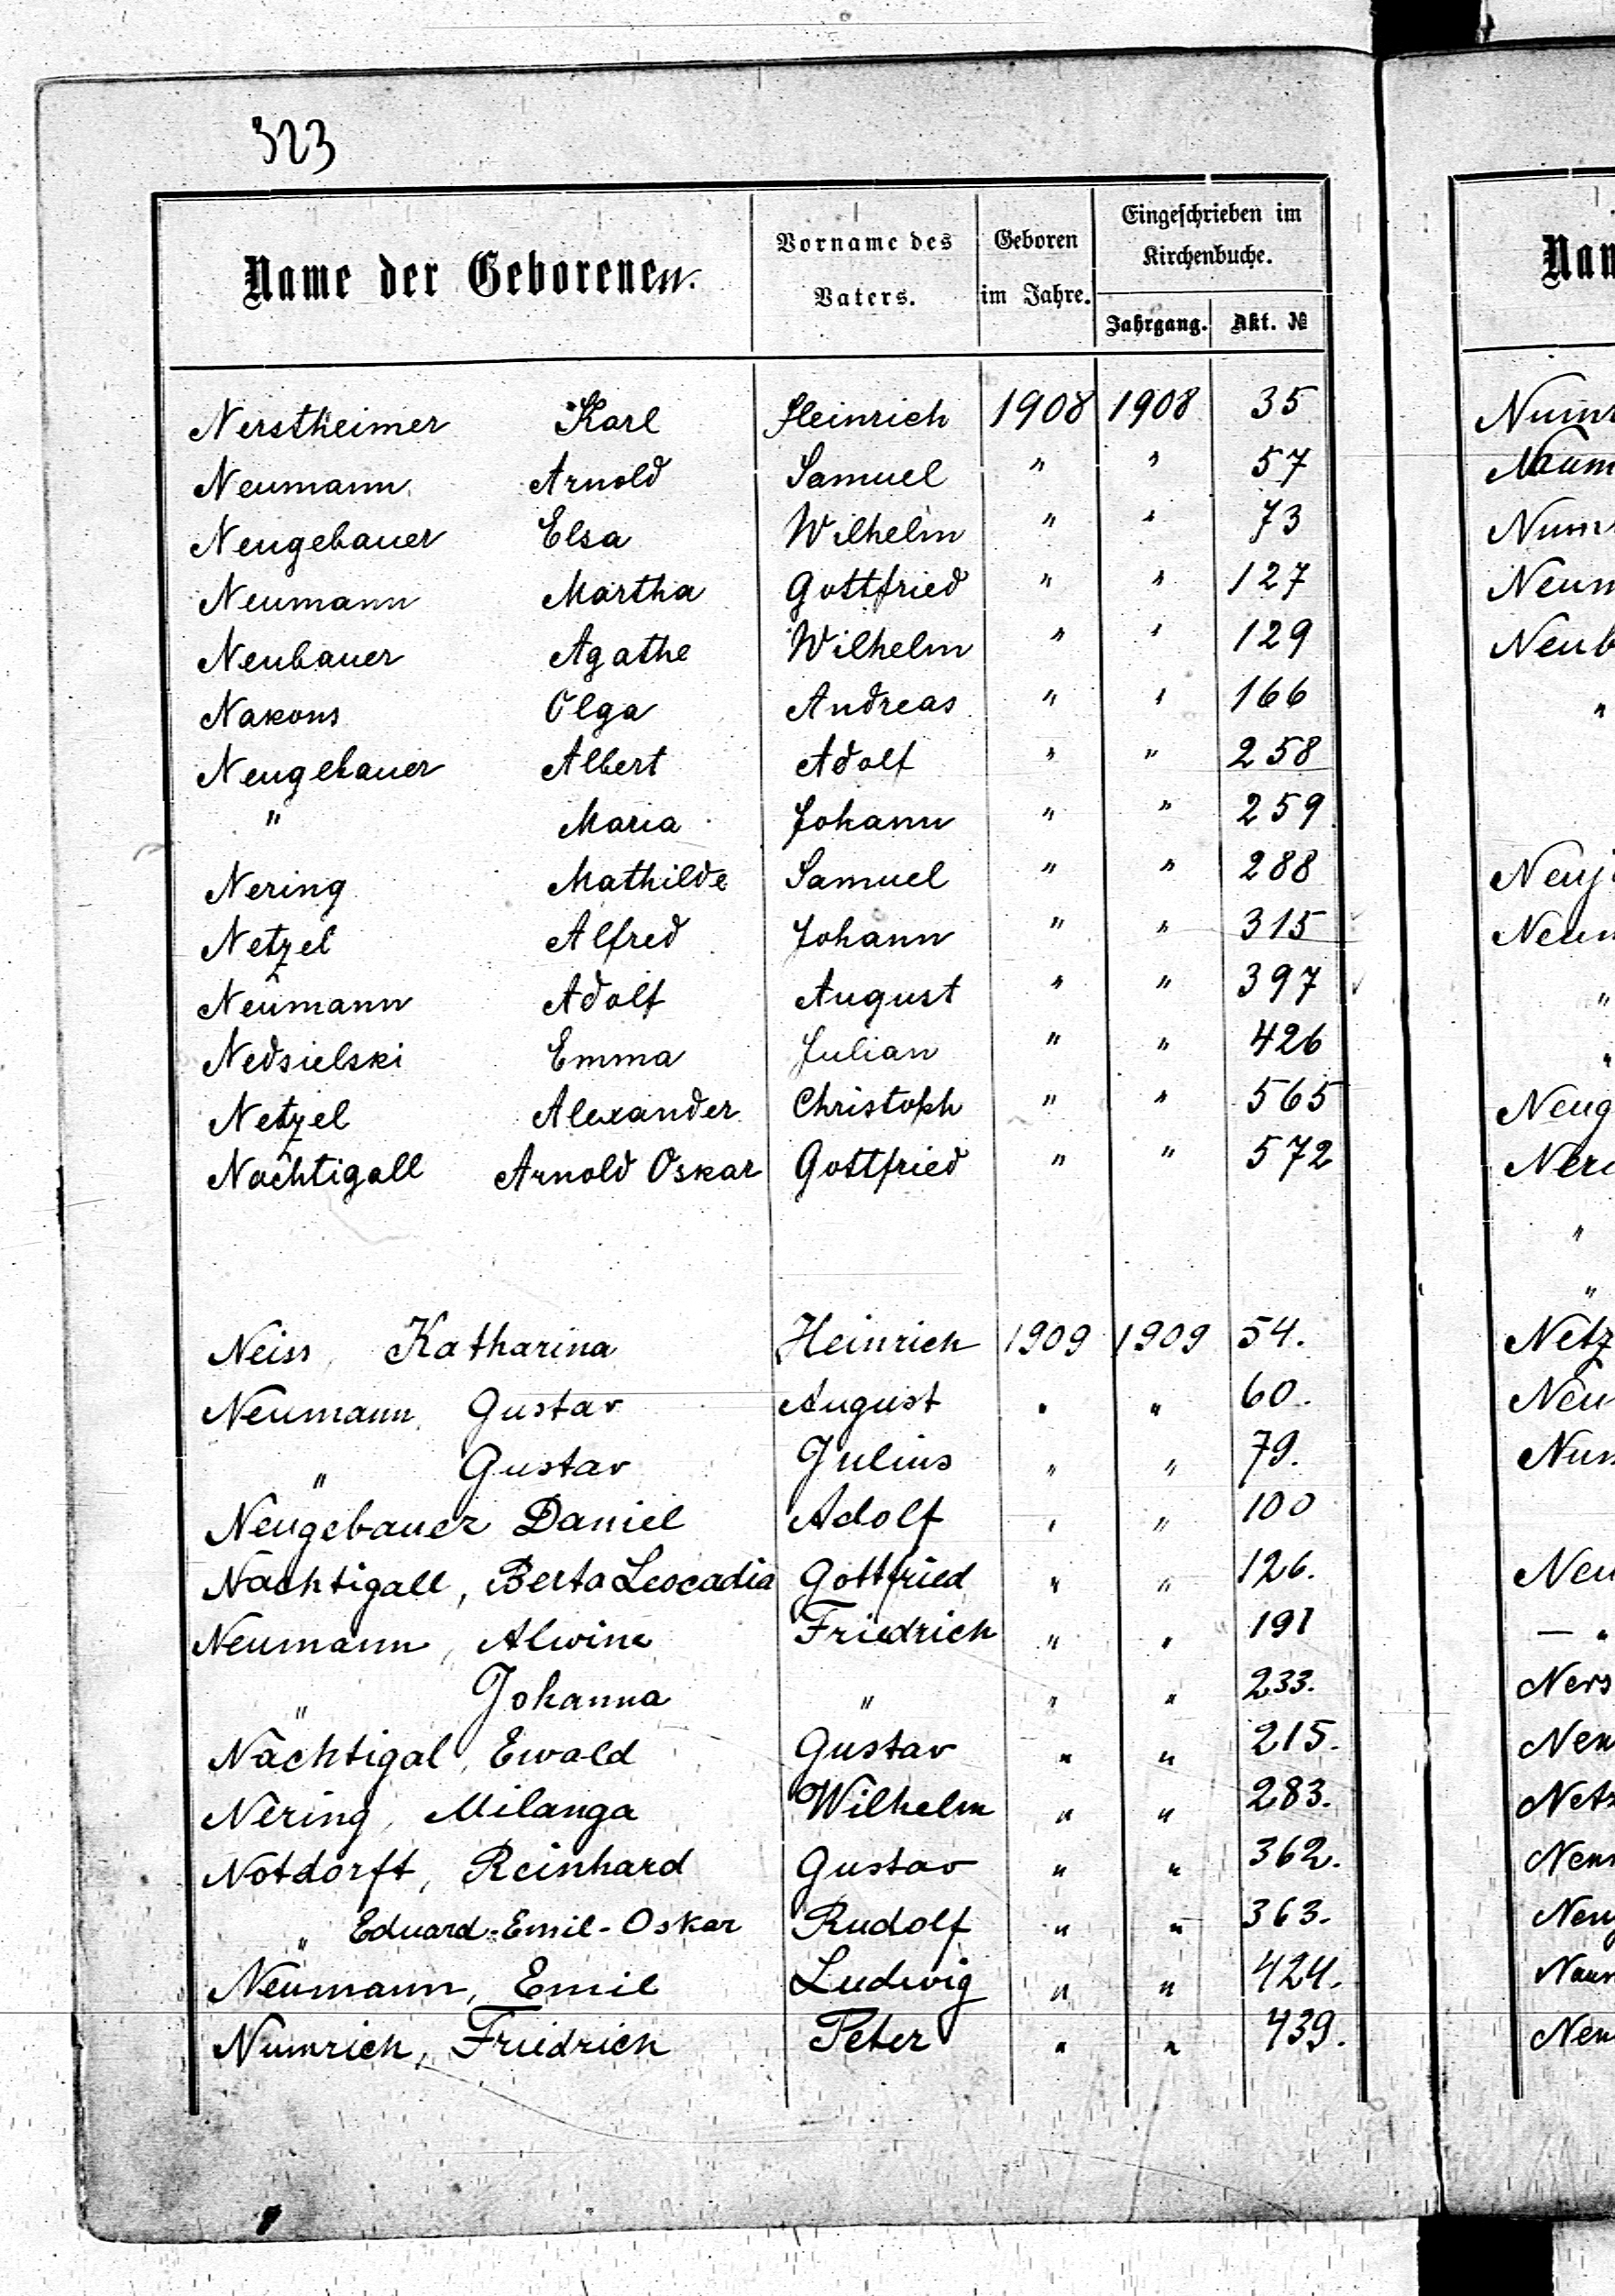 323
Name der Geborenen.
Vorname des Vaters.
Geboren im Jahre.
Eingeschrieben im Kirchenbuche.
Jahrgang. Akt. №
Nerstheimer Karl Heinrich 1908 1908 35
Neumann Arnold Samuel " " 57
Neugebauer Elsa Wilhelm " " 73
Neumann Martha Gottfried " " 127
Neubauer Agathe Wilhelm " " 129
Nakons Olga Andreas " " 166
Neugebauer Albert Adolf " " 258
" Maria Johann " " 259
Nering Mathilde Samuel " " 288
Netzel Alfred Johann " " 315
Neumann Adolf August " " 397
Nedsielski Emma Julian " " 426
Netzel Alexander Christoph " " 565
Nachtigall Arnold Oskar Gottfried " " 572
Neiss, Katharina Heinrich 1909 1909 54.
Neumann, Gustav August " " 60.
" Gustav Julius " " 79.
Neugebauer Daniel Adolf " " 100
Nachtigall, Berta Leocadia Gottfried " " 126.
Neumann, Alwine Friedrich " " 191
" Johanna " " " 233.
Nachtigal, Ewald Gustav " " 215.
Nering, Milanga Wilhelm " " 283.
Notdorft, Reinhard Gustav " " 362.
" Eduard-Emil-Oskar Rudolf " " 363.
Neumann, Emil Ludwig " " 424.
Numrich, Friedrich Peter " " 439.